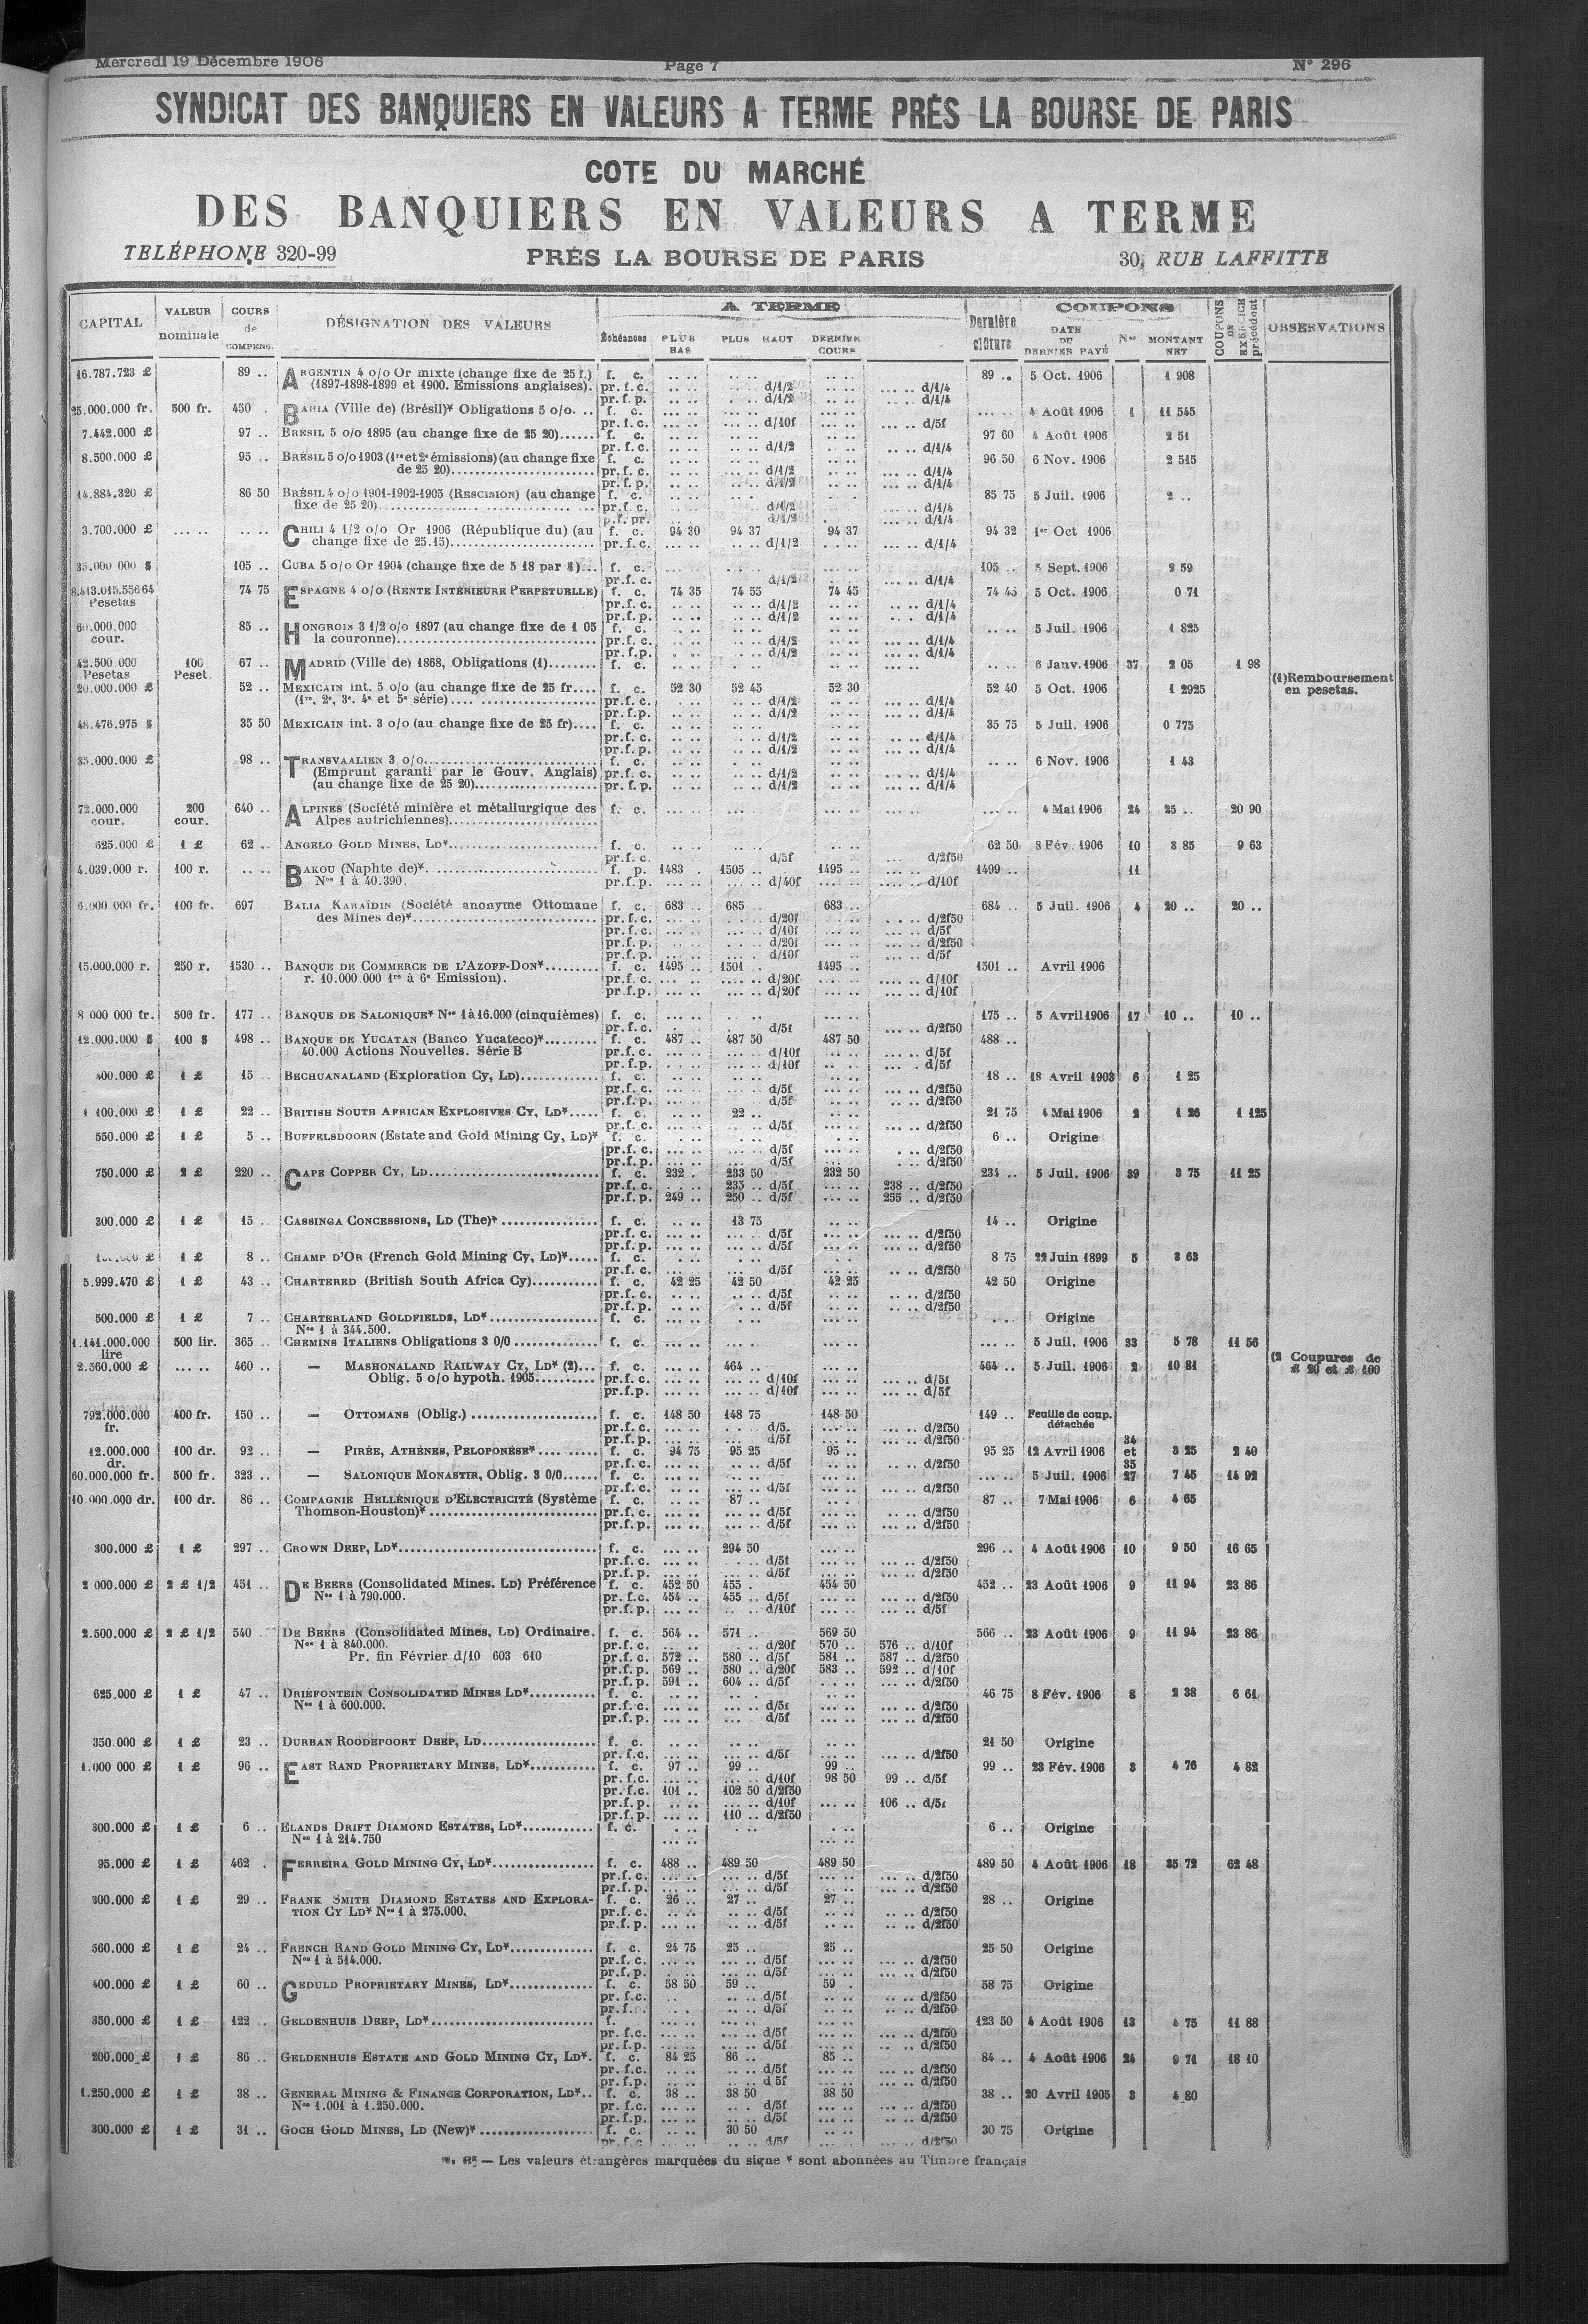 Mercredi 19 Décembre 1906 Page 7 N° 296
SYNDICAT DES BANQUIERS EN VALEURS A TERME PRÈS LA BOURSE DE PARIS
COTE DU MARCHÉ
DES BANQUIERS EN VALEURS A TERME
TELÉPHONE 320-99 PRÈS LA BOURSE DE PARIS 30, RUE LAFFITTE
CAPITAL VALEUR nominale COURS de COMPENS. DÉSIGNATION DES VALEURS A TERME Échéances PLUS BAS PLUS HAUT DERNIER COURS Dernière clôture COUPONS DATE DU DERNIER PAYÉ Nos MONTANT NET COUPONS DE EXERCICE précédent OBSERVATIONS
16.787.723 £ 89 .. ARGENTIN 4 o/o Or mixte (change fixe de 25 f.) f. c. 89 .. 5 Oct. 1906 1 908
(1897-1898-1899 et 1900. Emissions anglaises). pr. f. c. d/1/2 d/1/4
pr. f. p. d/1/2 d/1/4
25.000.000 fr. 500 fr. 450 . BAHIA (Ville de) (Brésil)* Obligations 5 o/o. .. f. c. 4 Août 1906 1 11 545
pr. f. c. d/10f d/5f
7.442.000 £ 97 .. BRÉSIL 5 o/o 1895 (au change fixe de 25 20)...... f. c. 97 60 4 Août 1906 2 51
pr. f. c. d/1/2 d/1/4
8.500.000 £ 95 .. BRÉSIL 5 o/o 1903 (1re et 2e émissions) (au change fixe f. c. 96 50 6 Nov. 1906 2 515
de 25 20)........ pr. f. c. d/1/2 d/1/4
pr. f. p. d/1/2 d/1/4
14.884.320 £ 86 50 BRÉSIL 4 o/o 1901-1902-1905 (RESCISION) (au change f. c. 85 75 5 Juil. 1906 2 ..
fixe de 25 20)........ pr. f. c. d/1/2 d/1/4
p. f. pr. d/1/2 d/1/4
3.700.000 £ CHILI 4 1/2 o/o Or 1906 (République du) (au f. c. 94 30 94 37 94 37 94 32 1er Oct 1906
change fixe de 25.15)........ pr. f. c. d/1/2 d/1/4
35.000 000 $ 105 .. CUBA 5 o/o Or 1904 (change fixe de 5 18 par $)... f. c. 105 .. 5 Sept. 1906 2 59
pr. f. c. d/1/2 d/1/4
8.413.015.556 64 Pesetas 74 75 ESPAGNE 4 o/o (RENTE INTÉRIEURE PERPÉTUELLE) f. c. 74 35 74 55 74 45 74 45 5 Oct. 1906 0 71
pr. f. c. d/1/2 d/1/4
pr. f. p. d/1/2 d/1/4
60.000.000 cour. 85 .. HONGROIS 3 1/2 o/o 1897 (au change fixe de 1 05 f. c. 5 Juil. 1906 1 825
la couronne)........ pr. f. c. d/1/2 d/1/4
pr. f. p. d/1/2 d/1/4
42.500 000 Pesetas 100 Peset. 67 .. MADRID (Ville de) 1868, Obligations (1)........ f. c. 6 Janv. 1906 37 2 05 1 98 (1) Remboursement en pesetas.
20.000.000 £ 52 .. MEXICAIN int. 5 o/o (au change fixe de 25 fr.... f. c. 52 30 52 45 52 30 52 40 5 Oct. 1906 1 2925
(1re, 2e, 3e. 4e et 5e série)........ pr. f. c. d/1/2 d/1/4
pr. f. p. d/1/2 d/1/4
48.476.975 $ 35 50 MEXICAIN int. 3 o/o (au change fixe de 25 fr).... f. c. 35 75 5 Juil. 1906 0 775
pr. f. c. d/1/2 d/1/4
pr. f. p. d/1/2 d/1/4
35.000.000 £ 98 .. TRANSVAALIEN 3 o/o........ f. c. 6 Nov. 1906 1 43
(Emprunt garanti par le Gouv. Anglais) pr. f. c. d/1/2 d/1/4
(au change fixe de 25 20)........ pr. f. p. d/1/2 d/1/4
72.000.000 cour. 200 cour. 640 .. ALPINES (Société minière et métallurgique des f. c. 4 Mai 1906 24 25 .. 20 90
Alpes autrichiennes)........
625.000 £ 1 £ 62 .. ANGELO GOLD MINES, LD*........ f. c. 62 50 8 Fév. 1906 10 3 85 9 63
pr. f. c. d/5f d/2f50
4.039.000 r. 100 r. BAKOU (Naphte de)*. ........ f. p. 1483 . 1505 .. 1495 .. 1499 .. 11
Nos 1 à 40.390. pr. f. p. d/40f d/10f
6.000 000 fr. 100 fr. 697 BALIA KARAÏDIN (Société anonyme Ottomane f. c. 683 .. 685 . 683 .. 684 .. 5 Juil. 1906 4 20 .. 20 ..
des Mines de)*........ pr. f. c. d/20f d/2f50
pr. f. c. d/10f d/5f
pr. f. p. d/20f d/2f50
pr. f. p. d/10f d/5f
15.000.000 r. 250 r. 1530 .. BANQUE DE COMMERCE DE L'AZOFF-DON*........ f. c. 1495 .. 1501 .. 1495 .. 1501 .. Avril 1906
r. 10.000.000 1re à 6e Emission). pr. f. c. d/20f d/10f
pr. f. p. d/20f d/10f
8 000 000 fr. 500 fr. 177 .. BANQUE DE SALONIQUE* Nos 1 à 16.000 (cinquièmes) f. c. 175 .. 5 Avril 1906 17 10 .. 10 ..
pr. f. c. d/5f d/2f50
12.000.000 $ 100 $ 498 .. BANQUE DE YUCATAN (Banco Yucateco)*........ f. c. 487 .. 487 50 487 50 488 ..
40.000 Actions Nouvelles. Série B pr. f. c. d/10f d/5f
pr. f. p. d/10f d/5f
400.000 £ 1 £ 15 .. BECHUANALAND (Exploration Cy, LD)........ f. c. 18 .. 18 Avril 1903 6 1 25
pr. f. c. d/5f d/2f50
pr. f. p. d/5f d/2f50
1 100.000 £ 1 £ 22 .. BRITISH SOUTH AFRICAN EXPLOSIVES CY, LD*..... f. c. 22 .. 21 75 4 Mai 1906 2 1 26 1 125
pr. f. c. d/5f d/2f50
550.000 £ 1 £ 5 .. BUFFELSDOORN (Estate and Gold Mining Cy, LD)* f. c. 6 .. Origine
pr. f. c. d/5f d/2f50
pr. f. p. d/5f d/2f50
750.000 £ 2 £ 220 .. CAPE COPPER CY, LD........ f. c. 232 . 233 50 232 50 234 .. 5 Juil. 1906 39 3 75 11 25
pr. f. c. 235 .. d/5f 238 .. d/2f50
pr. f. p. 249 .. 250 .. d/5f 255 .. d/2f50
300.000 £ 1 £ 15 .. CASSINGA CONCESSIONS, LD (The)* ........ f. c. 13 75 14 .. Origine
pr. f. c. d/5f d/2f50
pr. f. p. d/5f d/2f50
1 £ 8 .. CHAMP D'OR (French Gold Mining Cy, LD)*..... f. c. 8 75 22 Juin 1899 5 3 63
pr. f. c. d/5f d/2f50
5.999.470 £ 1 £ 43 .. CHARTERED (British South Africa Cy)........ f. c. 42 25 42 50 42 25 42 50 Origine
pr. f. c. d/5f d/2f50
pr. f. p. d/5f d/2f50
500.000 £ 1 £ 7 .. CHARTERLAND GOLDFIELDS, LD*........ f. c. Origine
Nos 1 à 344.500.
1.141.000.000 lire 500 lir. 365 .. CHEMINS ITALIENS Obligations 3 0/0 ........ f. c. 5 Juil. 1906 33 5 78 11 56
2.560.000 £ 460 .. — MASHONALAND RAILWAY CY, LD* (2)... f. c. 464 .. 464 .. 5 Juil. 1906 2 10 81 (2 Coupures de £ 20 et £ 100
Oblig. 5 o/o hypoth. 1905........ pr. f. c. d/10f d/5f
pr. f. p. d/10f d/5f
792.000.000 fr. 400 fr. 150 .. — OTTOMANS (Oblig.) ........ f. c. 148 50 148 75 148 50 149 .. Feuille de coup. détachée
pr. f. c. d/5. d/2f50
pr. f. p. d/5f d/2f50
12.000.000 dr. 100 dr. 92 .. — PIRÉE, ATHÈNES, PELOPONÈSE*........ f. c. 94 75 95 25 95 .. 95 25 12 Avril 1906 34 et 35 3 25 2 40
pr. f. c. d/5f d/2f50
60.000.000 fr. 500 fr. 323 .. — SALONIQUE MONASTIR, Oblig. 3 0/0...... f. c. 5 Juil. 1906 27 7 45 14 92
pr. f. c. d/5f d/2f50
10.000.000 dr. 100 dr. 86 .. COMPAGNIE HELLÉNIQUE D'ELECTRICITÉ (Système f. c. 87 .. 87 .. 7 Mai 1906 6 4 65
Thomson-Houston)* ........ pr. f. c. d/5f d/2f50
pr. f. p. d/5f d/2f50
300.000 £ 1 £ 297 .. CROWN DEEP, LD*........ f. c. 294 50 296 .. 4 Août 1906 10 9 50 16 65
pr. f. c. d/5f d/2f50
pr. f. p. d/5f d/2f50
2 000.000 £ 2 £ 1/2 451 .. DE BEERS (Consolidated Mines. LD) Préférence f. c. 452 50 455 . 454 50 452 .. 23 Août 1906 9 11 94 23 86
Nos 1 à 790.000. pr. f. c. 454 .. 455 .. d/5f d/2f50
pr. f. p. d/10f d/5f
2.500.000 £ 2 £ 1/2 540 DE BEERS (Consolidated Mines, LD) Ordinaire. f. c. 564 .. 571 .. 569 50 566 .. 23 Août 1906 9 11 94 23 86
Nos 1 à 840.000. pr. f. c. d/20f 570 .. 576 .. d/10f
Pr. fin Février d/10 603 610 pr. f. c. 572 .. 580 .. d/5f 581 .. 587 .. d/2f50
pr. f. p. 569 .. 580 .. d/20f 583 .. 592 .. d/10f
pr. f. p. 591 .. 604 .. d/5f d/2f50
625.000 £ 1 £ 47 .. DRIEFONTEIN CONSOLIDATED MINES LD*........ f. c. 46 75 8 Fév. 1906 8 2 38 6 61
Nos 1 à 600.000. pr. f. c. d/5f d/2f50
pr. f. p. d/5f d/2f50
350.000 £ 1 £ 23 .. DURBAN ROODEPOORT DEEP, LD........ f. c. 21 50 Origine
pr. f. c. d/5f d/2f50
1.000 000 £ 1 £ 96 .. EAST RAND PROPRIETARY MINES, LD*........ f. c. 97 .. 99 .. 99 .. 99 .. 23 Fév. 1906 3 4 76 4 82
pr. f. c. d/10f 98 50 99 .. d/5f
pr. f. c. 101 .. 102 50 d/2f50
pr. f. p. d/10f 106 .. d/5f
pr. f. p. 110 .. d/2f50
300.000 £ 1 £ 6 .. ELANDS DRIFT DIAMOND ESTATES, LD*........ f. c. 6 .. Origine
Nos 1 à 214.750
95.000 £ 1 £ 462 . FERREIRA GOLD MINING CY, LD*........ f. c. 488 .. 489 50 489 50 489 50 4 Août 1906 18 35 72 62 48
pr. f. c. d/5f d/2f50
pr. f. p. d/5f d/2f50
300.000 £ 1 £ 29 .. FRANK SMITH DIAMOND ESTATES AND EXPLORA- f. c. 26 .. 27 .. 27 .. 28 .. Origine
TION CY LD* Nos 1 à 275.000. pr. f. c. d/5f d/2f50
pr. f. p. d/5f d/2f50
560.000 £ 1 £ 24 .. FRENCH RAND GOLD MINING CY, LD*........ f. c. 24 75 25 .. 25 .. 25 50 Origine
Nos 1 à 514.000. pr. f. c. d/5f d/2f50
pr. f. p. d/5f d/2f50
400.000 £ 1 £ 60 .. GEDULD PROPRIETARY MINES, LD*........ f. c. 58 50 59 .. 59 . 58 75 Origine
pr. f. c. d/5f d/2f50
pr. f. p. d/5f d/2f50
350.000 £ 1 £ 122 .. GELDENHUIS DEEP, LD*........ f. 123 50 4 Août 1906 13 4 75 11 88
pr. f. c. d/5f d/2f50
pr. f. p. d/5f d/2f50
200.000 £ 1 £ 86 .. GELDENHUIS ESTATE AND GOLD MINING CY, LD*. f. c. 84 25 86 .. 85 .. 84 .. 4 Août 1906 24 9 71 18 10
pr. f. c. d/5f d/2f50
pr. f. p. d 5f d/2f50
1.250.000 £ 1 £ 38 .. GENERAL MINING & FINANCE CORPORATION, LD*.. f. c. 38 .. 38 50 38 50 38 .. 20 Avril 1905 3 4 80
Nos 1.001 à 1.250.000. pr. f. c. d/5f d/2f50
pr. f. p. d/5f d/2f50
300.000 £ 1 £ 31 .. GOCH GOLD MINES, LD (New)* ........ f. c. 30 50 30 75 Origine
pr. f. c d/5f d/2f50
— Les valeurs étrangères marquées du signe * sont abonnées au Timbre français